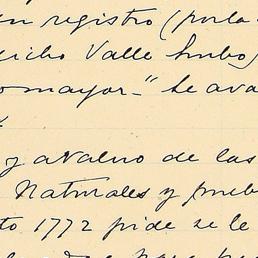 un registro (por la
dicho Valle hubo)
mayor_" Se ava
y avaluo de las
Naturales y pueb
to 1772 pide se le